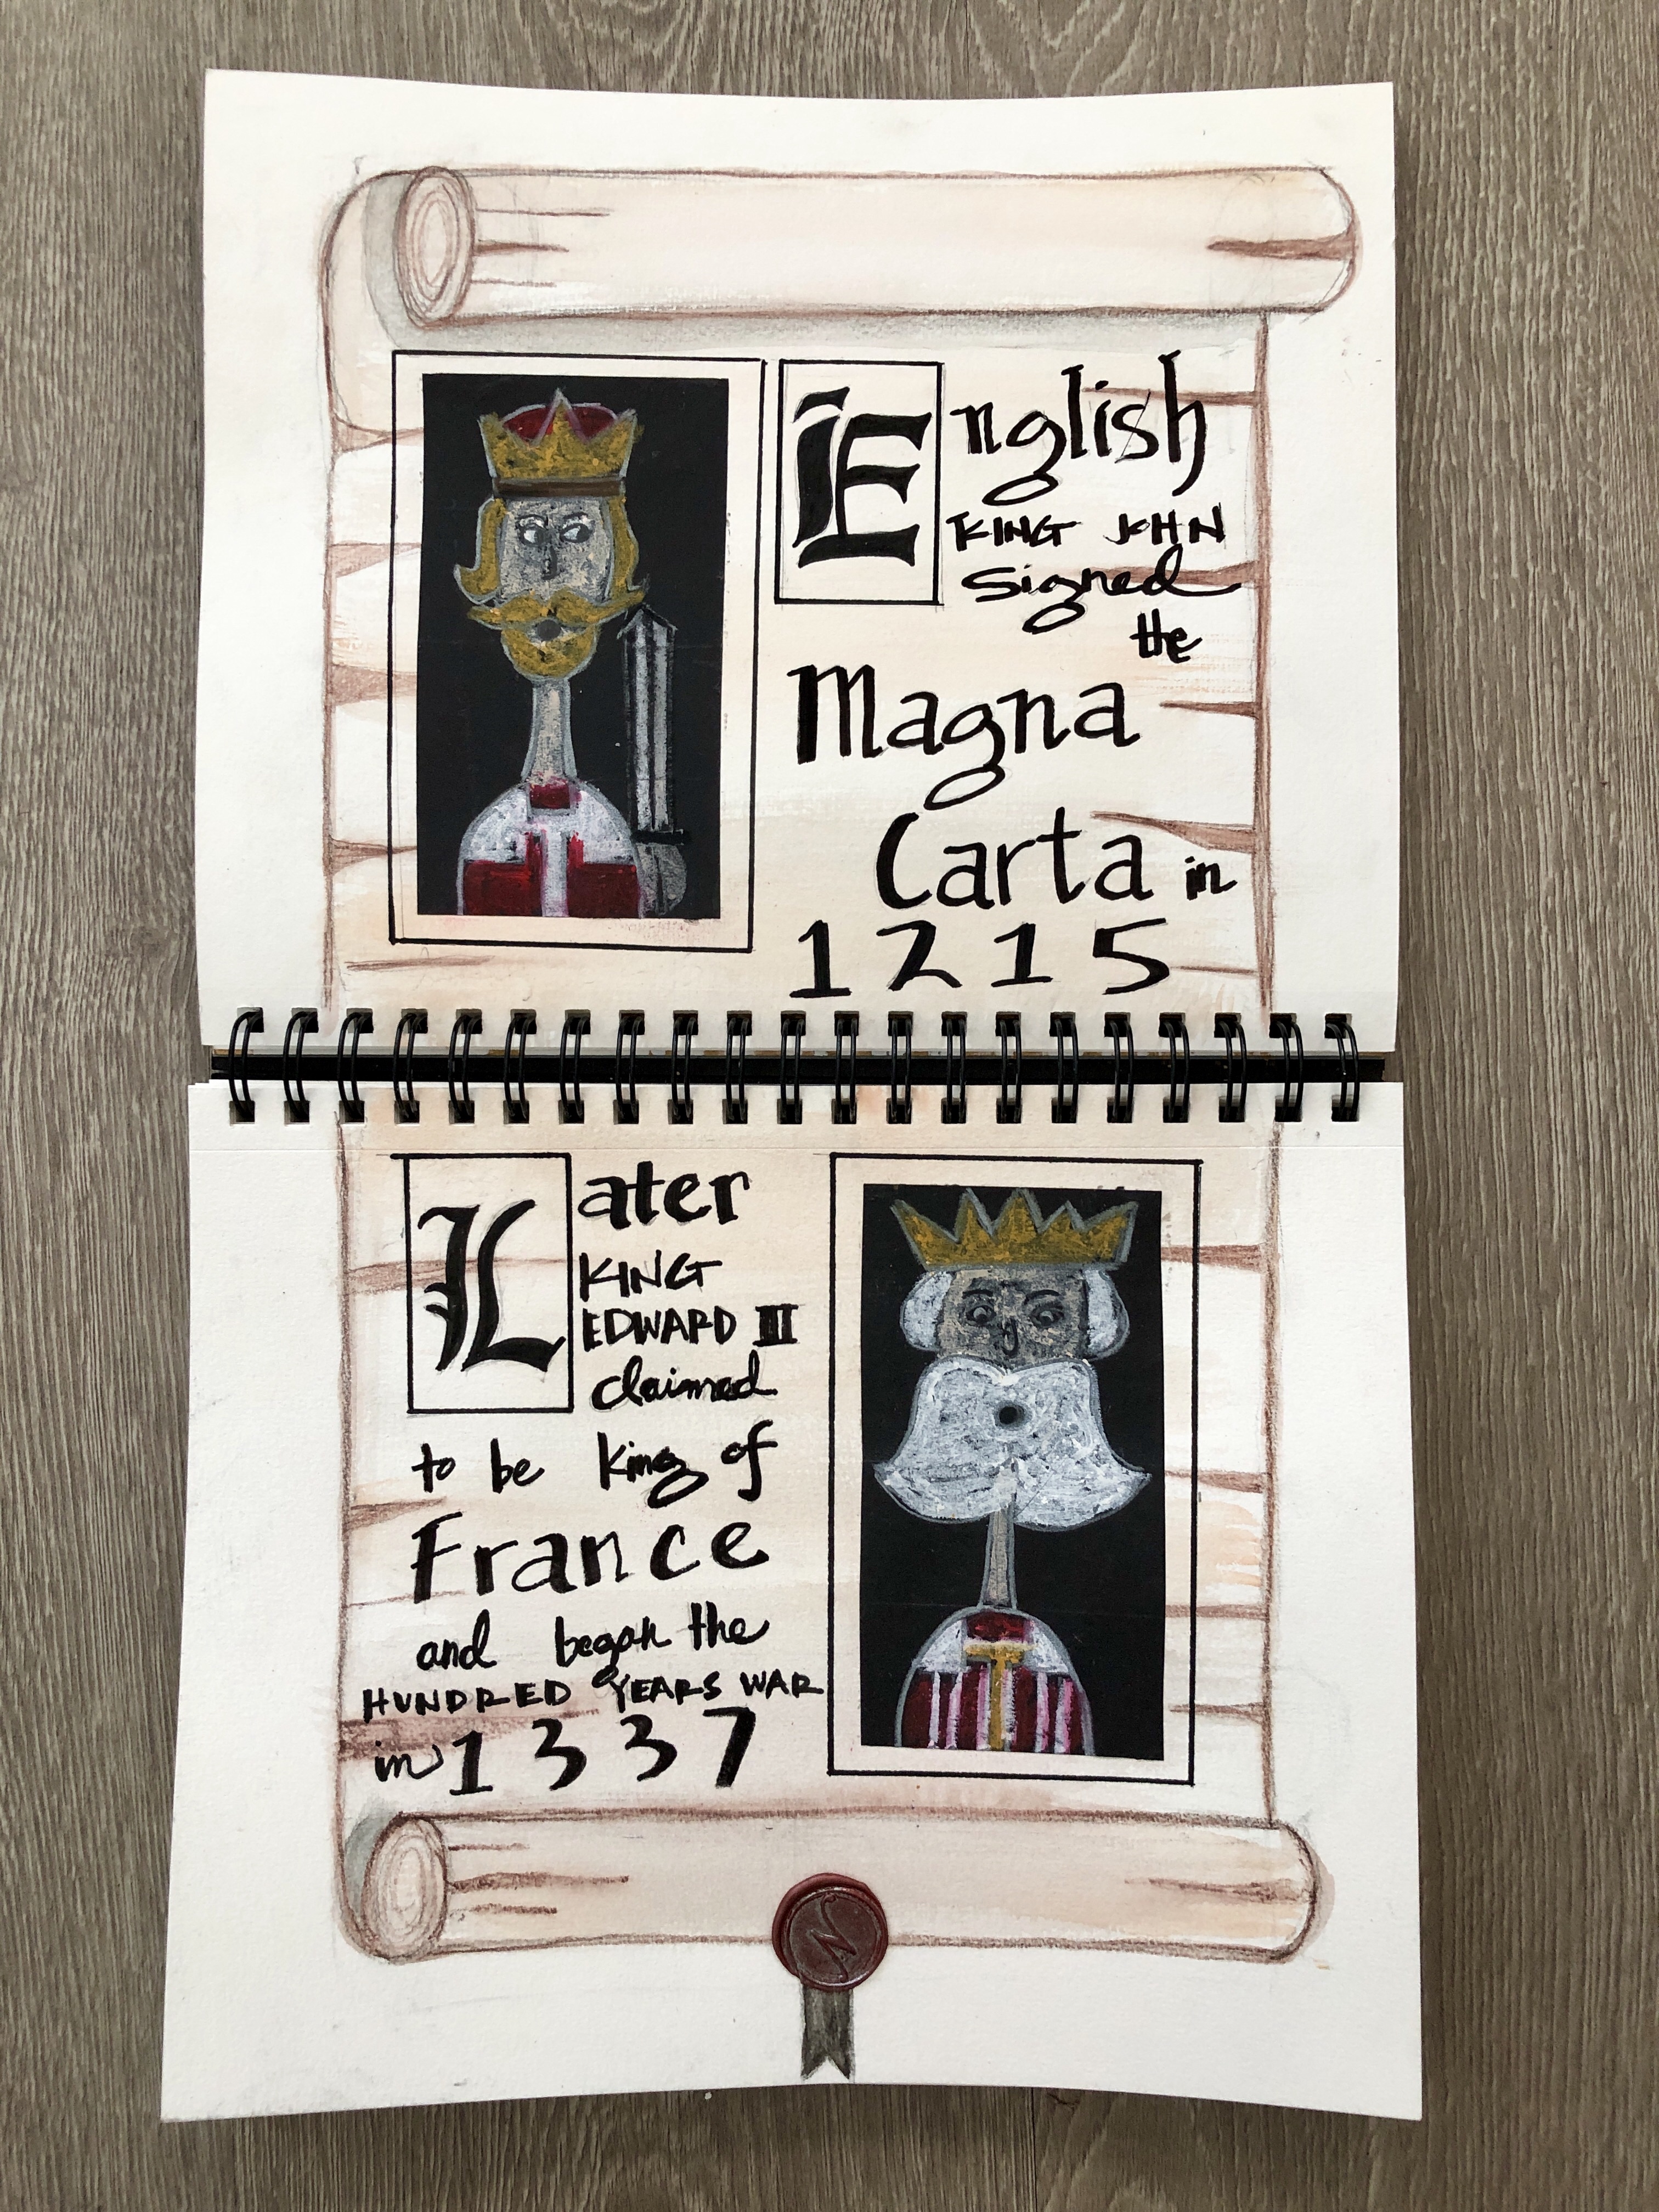 English
KING JOHN
signed
the
Magna
Carta in
1215
Later
KING
EDWARD III
claimed
to be king of
France
and began the
HUNDRED YEARS WAR
in 1337
N